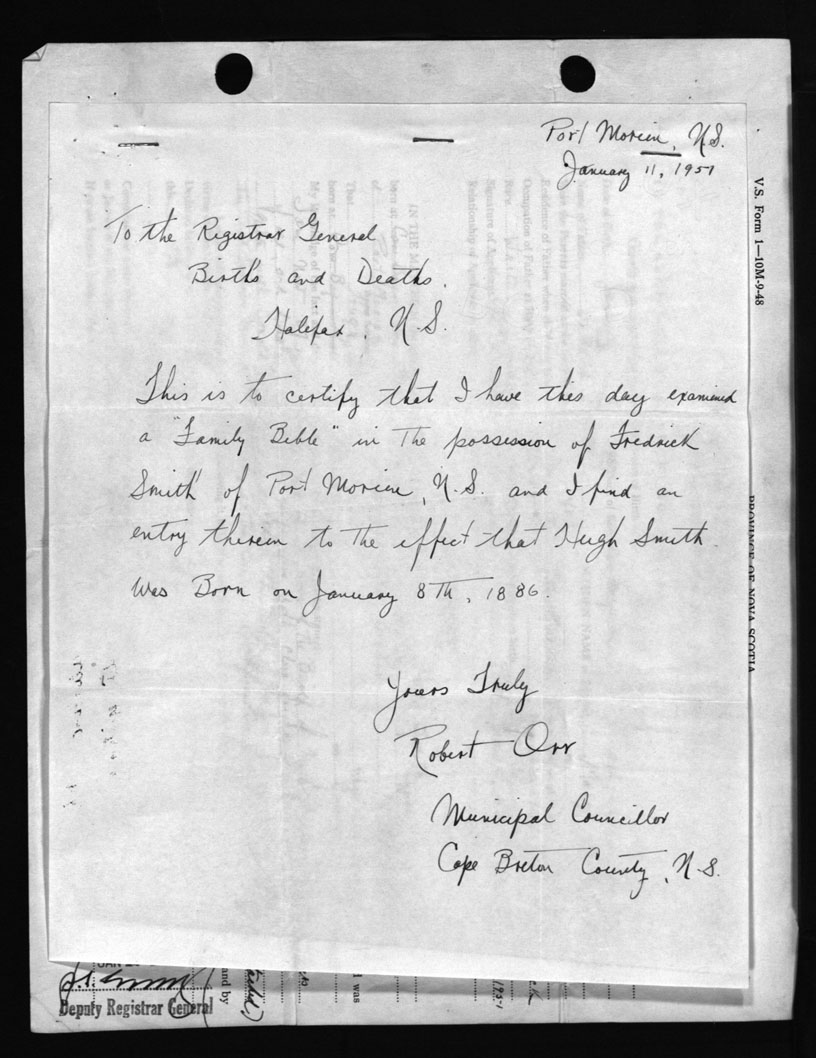 Port Morien, N.S.
January 11, 1951
To the Registrar General
Births and Deaths.
Halifax, N.S.
This is to certify that I have this day examined
a "Family Bible" in The possession of Fredrick
Smith of Port Morien, N.S. and I find an
entry therein to The effect that Hugh Smith
Was Born on January 8TH, 1886.
Yours Truly
Robert Orr
Municipal Councillor
Cape Breton County, N.S.
V.S. Form 1—10M-9-48
PROVINCE OF NOVA SCOTIA
Deputy Registrar General
and by
I was
1951